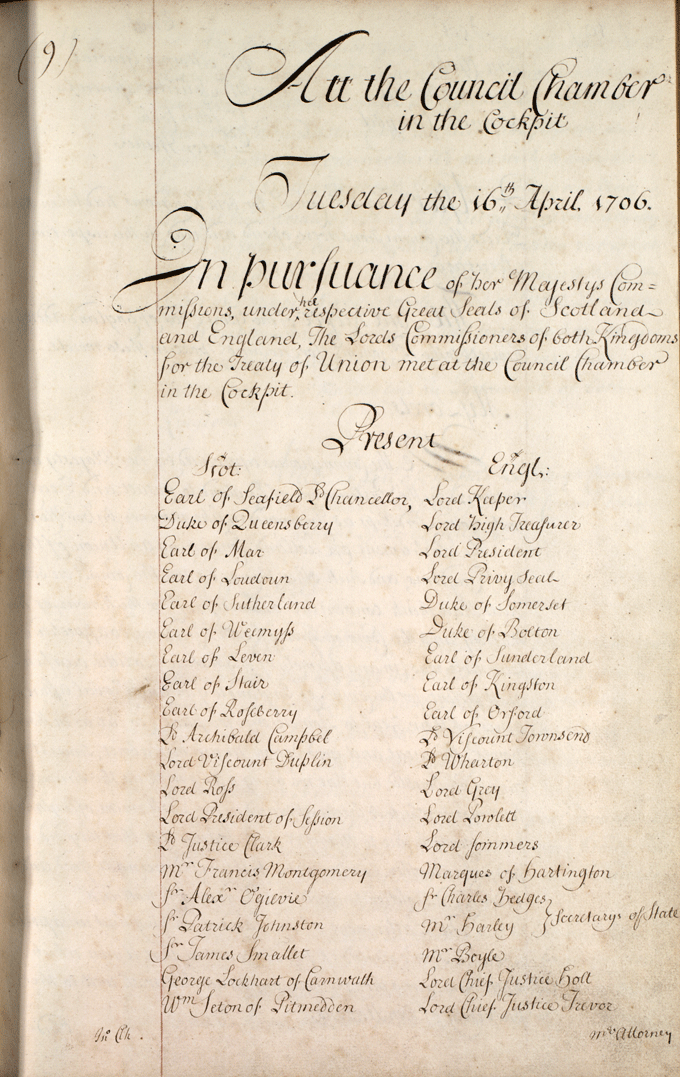 (9)
Att the Council Chamber
in the Cockpit
Tuesday the 16th April. 1706.
In pursuance of her Majestys Com=
missions, under her respective Great Seals of Scotland
and England, The Lords Commissioners of both Kingdoms
for the Treaty of Union met at the Council Chamber
in the Cockpit.
Present
Scot:
Earl of Seafield Ld Chancellor,
Duke of Queensberry
Earl of Mar
Earl of Loudoun
Earl of Sutherland
Earl of Weemyss
Earl of Leven
Earl of Stair
Earl of Roseberry
Ld Archibald Campbel
Lord Viscount Duplin
Lord Ross
Lord President of Session
Ld Justice Clark
Mr Francis Montgomery
Sr Alexr Ogilvie
Sr Patrick Johnston
Sr James Smallet
George Lockhart of Carnwath
Wm Seton of Pitmedden
Engl:
Lord Keeper
Lord high Treasurer
Lord President
Lord Privy Seal
Duke of Somerset
Duke of Bolton
Earl of Sunderland
Earl of Kingston
Earl of Orford
Ld Viscount Townsend
Ld Wharton
Lord Grey
Lord Powlett
Lord Sommers
Marques of Hartington
Sr Charles Hedges
Mr Harley
Secretarys of State
Mr Boyle
Lord Chief Justice Holt
Lord Chief Justice Trevor
Mr Attorney